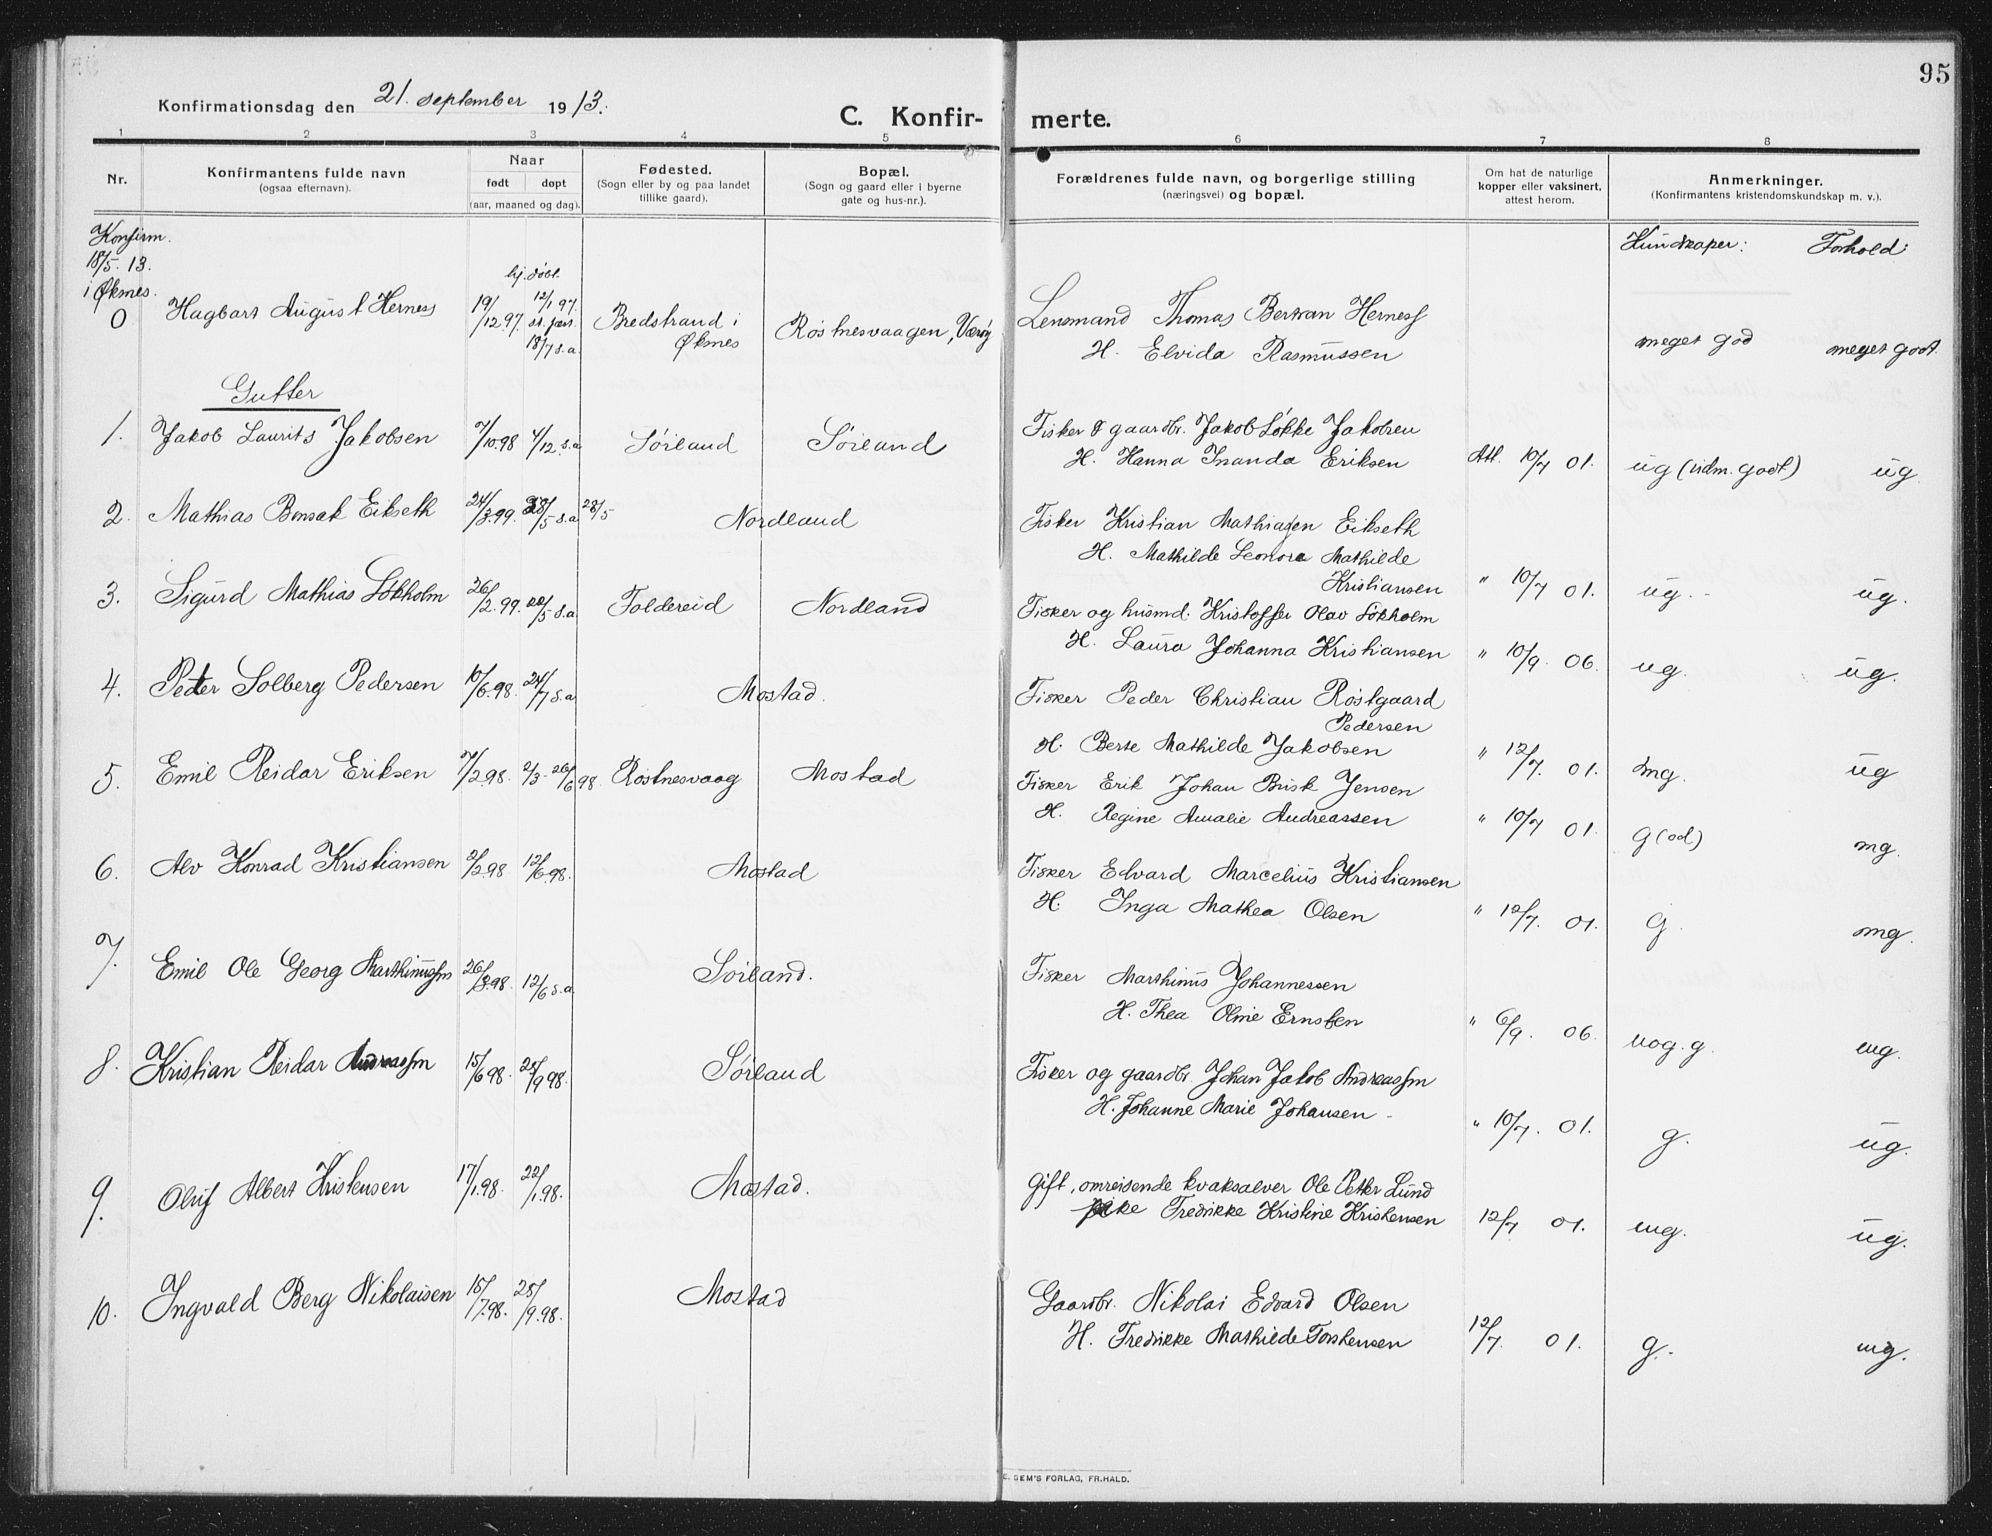 95
Konfirmationsdag den 21. september 1913.
C. Konfir- merte.
1 2 3 4 5 6 7 8
Nr.
Konfirmantens fulde navn
(ogsaa efternavn).
Naar
født døpt
(aar, maaned og dag).
Fødested.
(Sogn eller by og paa landet
tillike gaard).
Bopæl.
(Sogn og gaard eller i byerne
gate og hus-nr.).
Forældrenes fulde navn, og borgerlige stilling
(næringsvei) og bopæl.
Om hat de naturlige
kopper eller vaksinert,
attest herom.
Anmerkninger.
(Konfirmantens kristendomskundskap m. v.).
Kundskaper: Forhold:
Konfirm.
18/5. 13.
i Økmes.
0 Hagbart August Herness 19/12 97. hj. døbt 12/1 97. st. fæst. 18/7 s.a. Bredstrand i Økmes Røstnesvaagen, Værøy
Lensmand Thomas Bertran Herness
H. Elvida Rasmussen meget god meget godt.
Gutter
1. Jakob Laurits Jakobsen 7/10.98 4/12 s.a Sørland Sørland
Fisker & gaardbr. Jakob Løkke Jakobsen
H. Hanna Inanda Eriksen Att. 10/7 01. ug (udm. godt) ug.
2. Mathias Bensak Eikseth 24/3.99. 28/5 s.a 28/5 Nordland
Fisker Kristian Mathiasen Eikseth
H. Mathilde Leonora Mathilde
Kristiansen " 10/7 01. ug. ug.
3. Sigurd Mathias Løkholm 26/2.99. 20/5 s.a Foldereid Nordland
Fisker og husmd. Kristoffer Olav Løkholm
H. Laura Johanna Kristiansen " 10/9. 06. ug. ug.
4. Petter Solberg Pedersen 10/6.98. 24/7 s.a Mostad.
Fisker Peder Christian Røstgaard
Pedersen
H. Berte Mathilde Jakobsen " 12/7. 01. mg. ug
5. Emil Reidar Eriksen 7/2.98. 2/3 - 26/6 98. Røstnesvaag Mostad
Fisker Erik Johan Brisk Jensen
H. Regine Amalie Andreassen " 10/7 01. g (od) mg.
6. Alv Konrad Kristiansen 2/2.98 12/6.98. Mostad
Fisker Edvard Marcelius Kristiansen
H. Inga Mathea Olsen " 12/7. 01. g. mg.
7. Emil Ole Georg Marthinussen 26/3.98. 12/6 s.a. Sørland.
Fisker Marthinus Johannessen
H. Thea Oline Ernsten " 6/9. 06. nog. g. mg.
8. Kristian Reidar Andreassen 15/6 98. 25/9 98. Sørland
Fisker og gaardbr. Johan Jakob Andreassen
H. Johanne Marie Johansen " 10/7. 01. g. ug.
9. Oluf Albert Kristensen 17/1.98. 22/1.98. Mostad.
Gift, omreisende kvaksalver Ole Petter Lund
pike Fredrikke Kristine Kristensen 12/7 01. mg. ug.
10. Ingvald Berg Nikolaisen 15/7.98. 25/9.98. Mostad
Gaardbr. Nikolai Edvard Olsen
H. Fredrikke Mathilde Torstensen 12/7. 01. g. mg.
E. SEM'S FORLAG, FR.HALD.